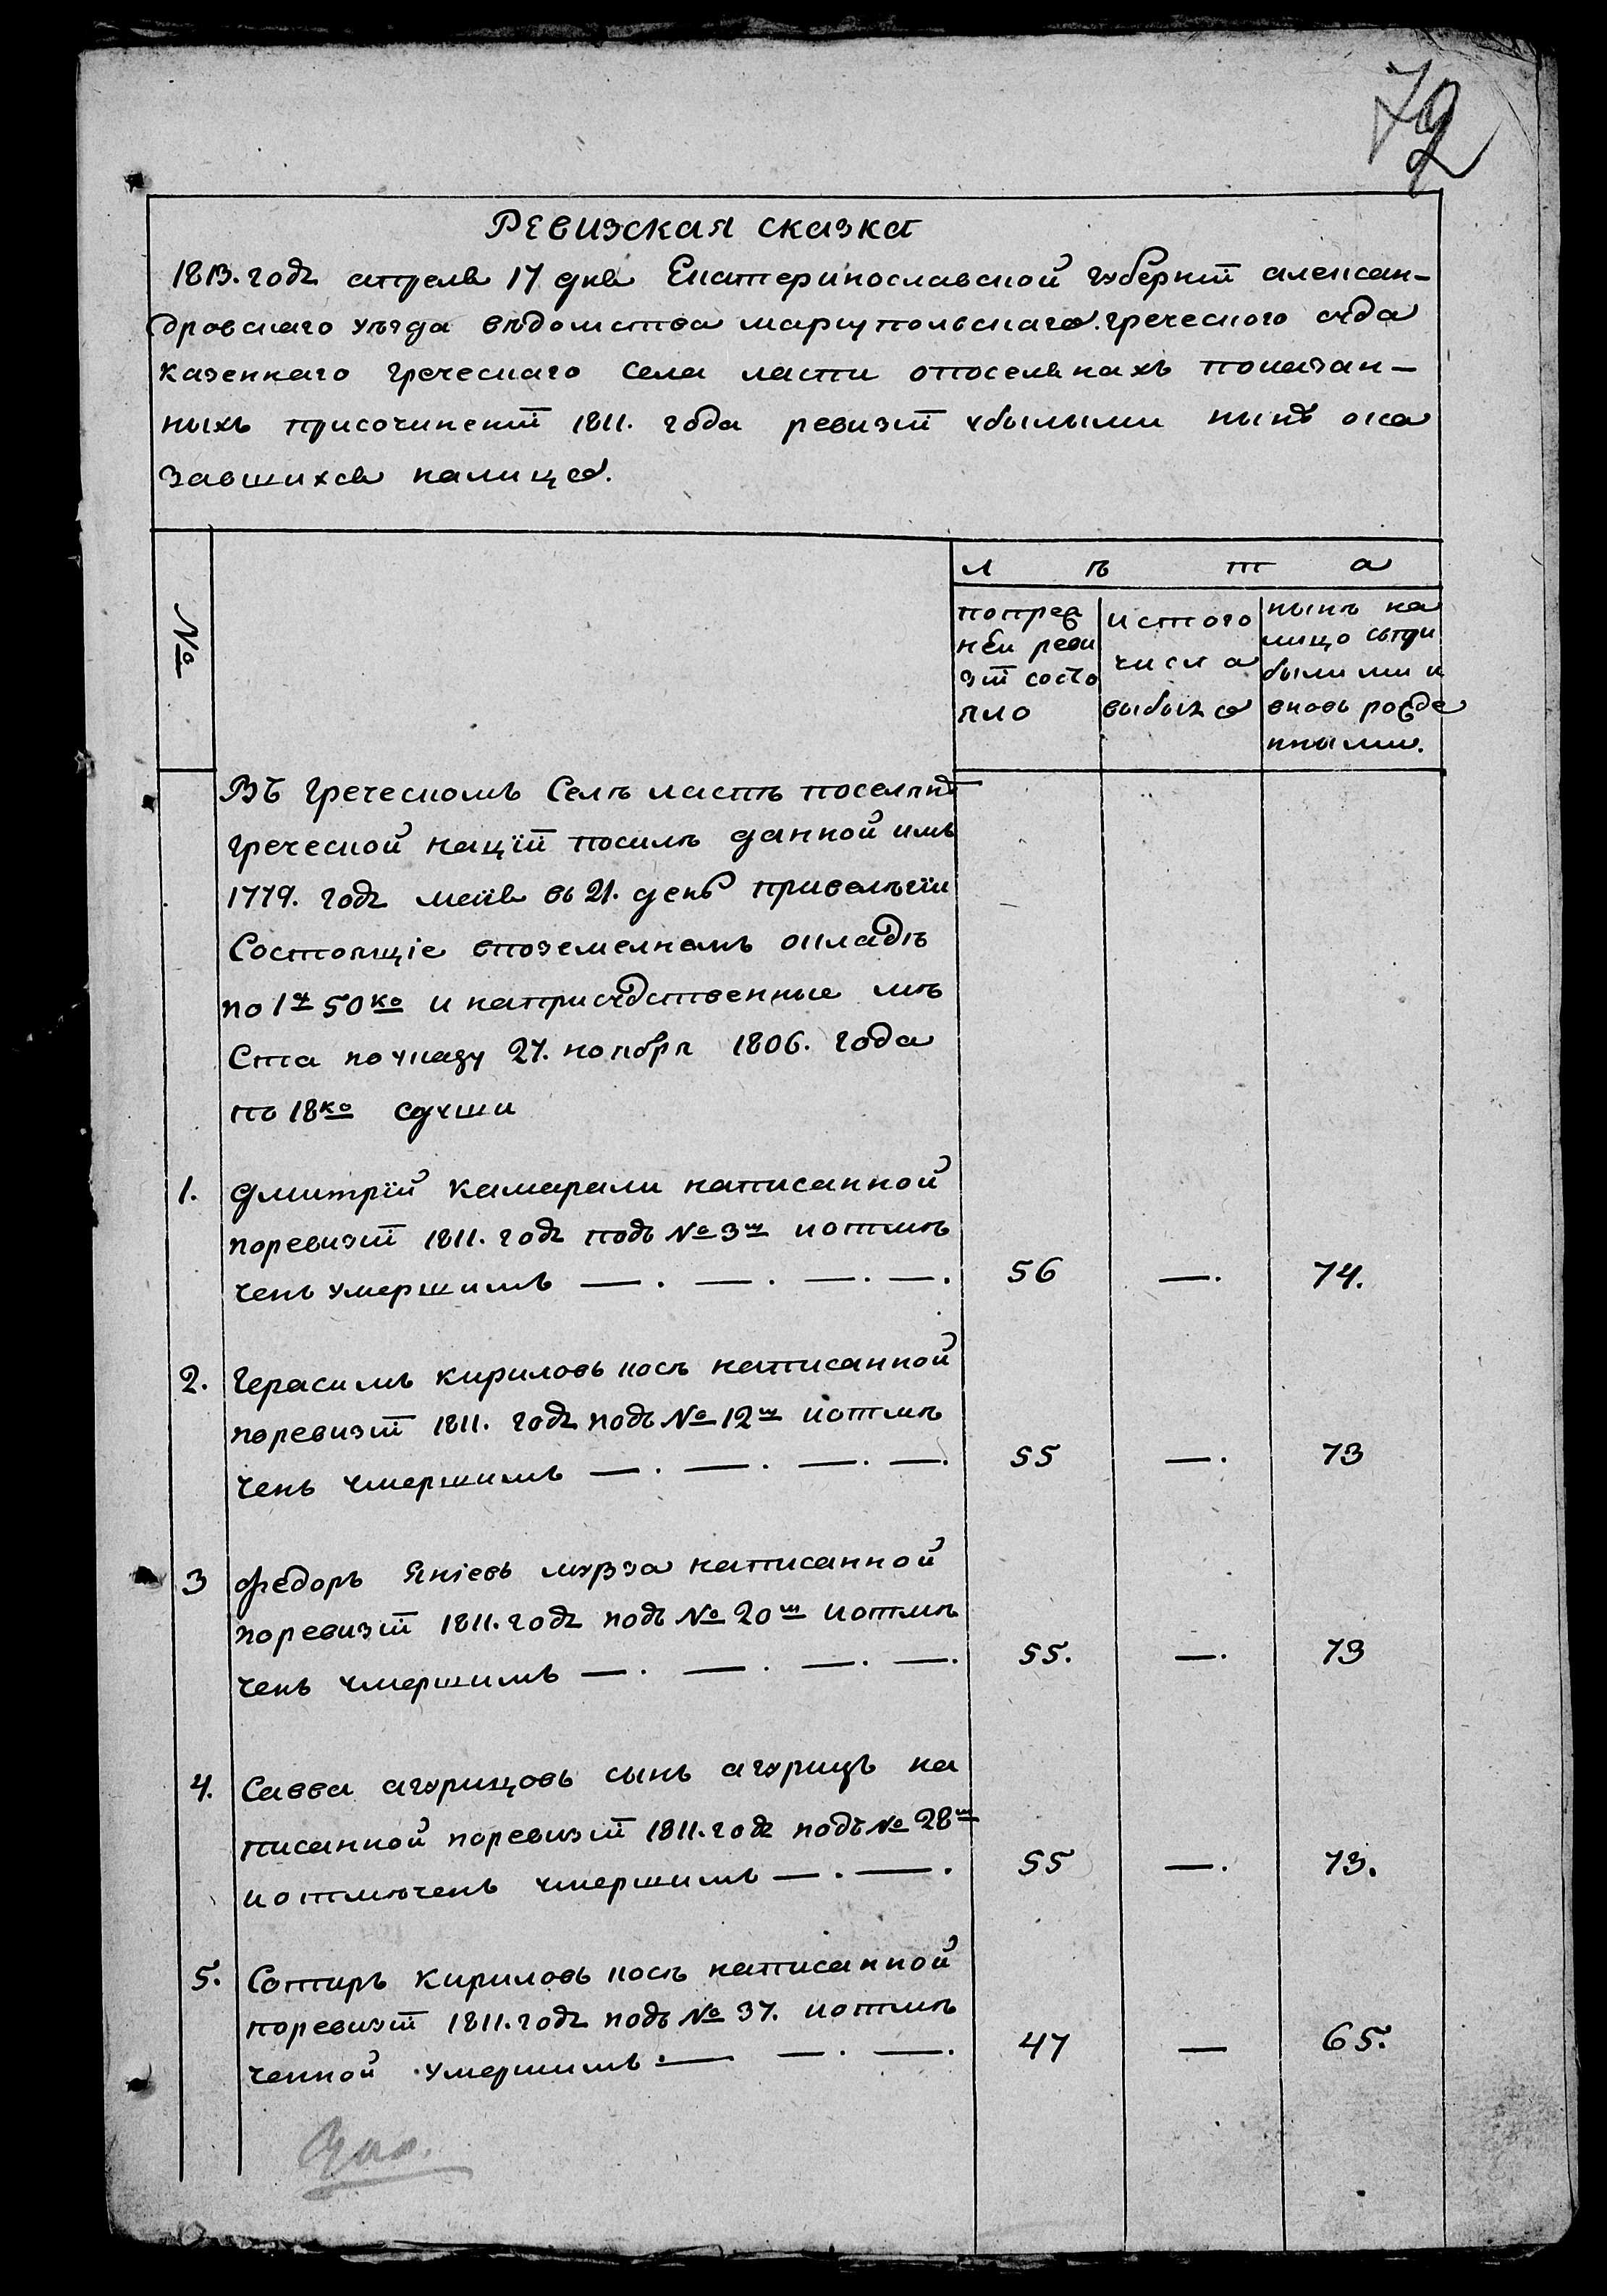 72
Ревизская сказка
1813. годꙋ апреля 17 дня Екатеринославской гꙋберніи алексан-
дровскаго уѣзда вѣдомства мариупольскаго. греческого сꙋда
казеннаго греческаго села ласпи опоселянахъ показан-
ныхъ присочиненіи 1811. года ревизіи убылыми нынѣ ока
завшихся налицо.
№
л ѣ т а
попред
ней реви
зіи состо
яло
истого
числа
выбыло
нынѣ на
лицо съпри
былими и
вновь рожде
нными.
Въ греческомъ Селѣ ласпѣ поселянѣ
греческой націи посилѣ данной имъ
1779. годꙋ маія въ 21. день привелѣгіи
Состоящіе впоземелномъ окладѣ
по 1р 50ко и наприсꙋдственные мѣ
ста поуказу 27. ноября 1806. года
по 18ко сдуши
1. Дмитрій камарали написанной
поревизіи 1811. годꙋ подъ № 3м иотмѣ
ченъ умершимъ —. —. —. —. 56 —. 74.
2. Герасимъ кириловъ косъ написанной
поревизіи 1811. годꙋ подъ № 12м иотмѣ
ченъ умершимъ —. —. —. —. 55 —. 73
3 федоръ Яніевъ мурза написанной
поревизіи 1811. годꙋ подъ № 20м иотмѣ
ченъ умершимъ —. —. —. —. 55. —. 73
4. Савва агурицовъ сынъ агурицъ на
писанной поревизіи 1811. годꙋ подъ № 28м
иотмѣченъ умершимъ —. —. 55 —. 73.
5. Сотиръ кириловъ косъ написанной
поревизіи 1811. годꙋ подъ № 37. иотмѣ
ченной умершимъ — —. —. 47 — 65.